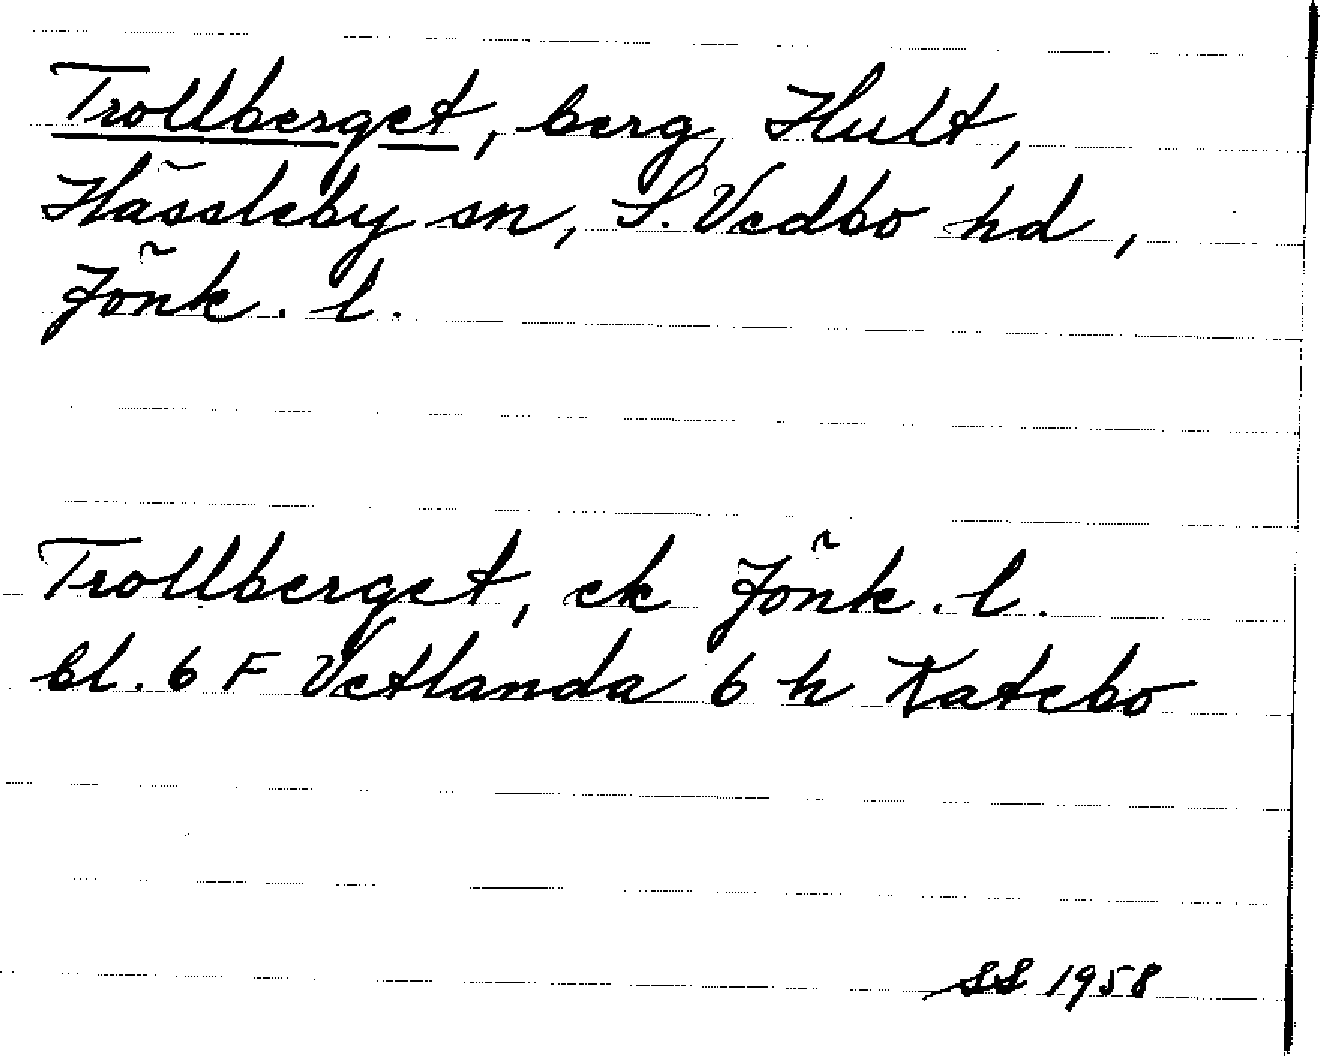 Trollberget, berg, Hult,
Hässleby sn, S. Vedbo hd,
Jönk. l.
Trollberget, ek Jönk. l.
bl. 6 F Vetlanda 6 h Katebo
SS 1958